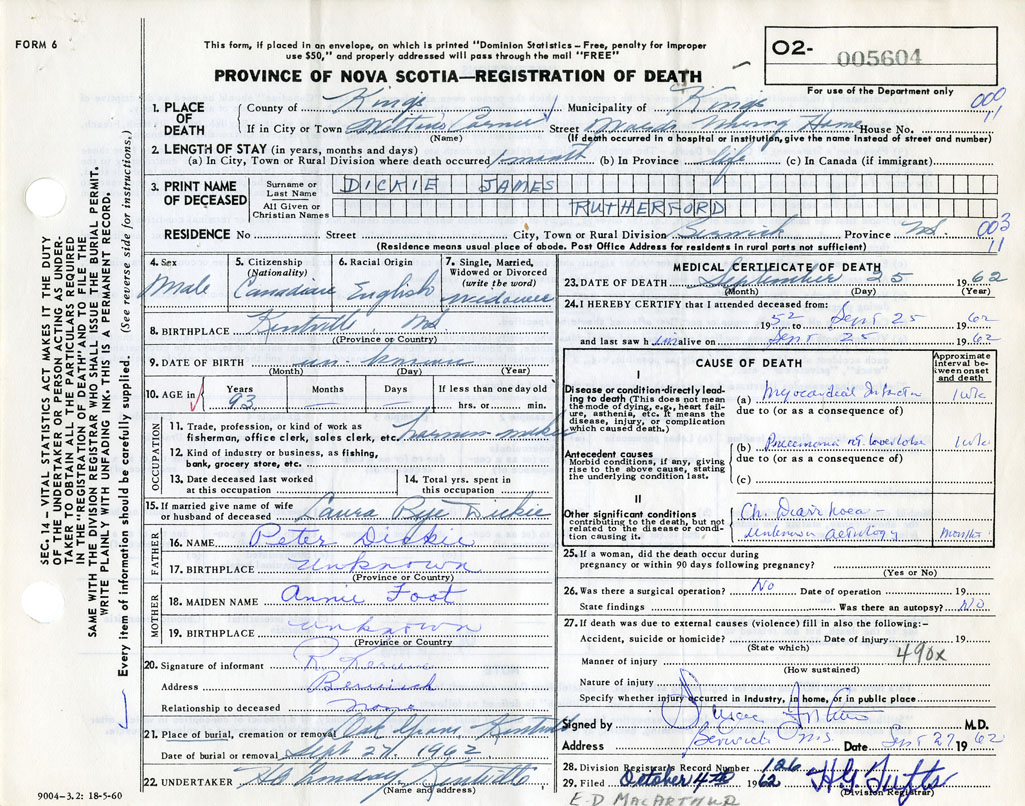 FORM 6
This form, if placed in an envelope, on which is printed "Dominion Statistics – Free, penalty for improper
use $50," and properly addressed will pass through the mail "FREE"
PROVINCE OF NOVA SCOTIA—REGISTRATION OF DEATH
O2- 005604
For use of the Department only
1. PLACE OF DEATH
County of Kings Municipality of Kings
000
11
If in City or Town Street Nursing Home House No.
(Name) (If death occurred in a hospital or institution, give the name instead of street and number)
2. LENGTH OF STAY (in years, months and days)
(a) In City, Town or Rural Division where death occurred 1 month (b) In Province life (c) In Canada (if immigrant)
3. PRINT NAME OF DECEASED
Surname or Last Name DICKIE JAMES
All Given or Christian Names RUTHERFORD
RESIDENCE No Street City, Town or Rural Division Berwick Province NS
003
11
(Residence means usual place of abode. Post Office Address for residents in rural parts not sufficient)
4. Sex Male
5. Citizenship (Nationality) Canadian
6. Racial Origin English
7. Single, Married, Widowed or Divorced (write the word) widower
8. BIRTHPLACE Kentville, NS
(Province or Country)
9. DATE OF BIRTH un-known
(Month) (Day) (Year)
10. AGE in Years 93 Months Days If less than one day old
hrs. or min.
OCCUPATION
11. Trade, profession, or kind of work as
fisherman, office clerk, sales clerk, etc. harness maker
12. Kind of industry or business, as fishing,
bank, grocery store, etc.
13. Date deceased last worked at this occupation
14. Total yrs. spent in this occupation
15. If married give name of wife
or husband of deceased Laura Dickie
FATHER
16. NAME Peter Dickie
17. BIRTHPLACE Unknown
(Province or Country)
MOTHER
18. MAIDEN NAME Annie Foot
19. BIRTHPLACE Unknown
(Province or Country)
20. Signature of informant R
Address Berwick
Relationship to deceased None
21. Place of burial, cremation or removal Oak Grove Kentville
Date of burial or removal Sept 27, 1962
22. UNDERTAKER Kentville
(Name and address)
9004–3.2: 18-5-60
MEDICAL CERTIFICATE OF DEATH
23. DATE OF DEATH September 25 1962
(Month) (Day) (Year)
24. I HEREBY CERTIFY that I attended deceased from:
1952 to Sept 25 1962
and last saw him alive on Sept 25 1962
CAUSE OF DEATH
Approximate interval between onset and death
I
Disease or condition-directly leading to death (This does not mean the mode of dying, e.g., heart failure, asthenia, etc. It means the disease, injury, or complication which caused death.)
(a) Myocardial Infarction 1 wk
due to (or as a consequence of)
Antecedent causes
Morbid conditions, if any, giving rise to the above cause, stating the underlying condition last.
(b) Pneumonia rt. lower lobe 1 wk
due to (or as a consequence of)
(c)
II
Other significant conditions
contributing to the death, but not related to the disease or condition causing it.
Ch. Diarrhoea –
unknown aetiology months
25. If a woman, did the death occur during
pregnancy or within 90 days following pregnancy?
(Yes or No)
26. Was there a surgical operation? No Date of operation 19
State findings Was there an autopsy? No
27. If death was due to external causes (violence) fill in also the following:–
Accident, suicide or homicide? Date of injury 19
(State which)
490x
Manner of injury
(How sustained)
Nature of injury
Specify whether injury occurred in Industry, home, or in public place
Signed by M.D.
Address Berwick N.S Date Sept 27 1962
28. Division Registrars Record Number 126
29. Filed October 4th 1962 H.G.
(Division Registrar)
E D MACARTHUR
SEC. 14–VITAL STATISTICS ACT MAKES IT THE DUTY
OF THE UNDERTAKER OR PERSON ACTING AS UNDER-
TAKER TO OBTAIN THE PARTICULARS REQUIRED
IN THE "REGISTRATION OF DEATH" AND TO FILE THE
SAME WITH THE DIVISION REGISTRAR WHO SHALL ISSUE THE BURIAL PERMIT.
WRITE PLAINLY WITH UNFADING INK. THIS IS A PERMANENT RECORD.
Every item of information should be carefully supplied. (See reverse side for instructions.)